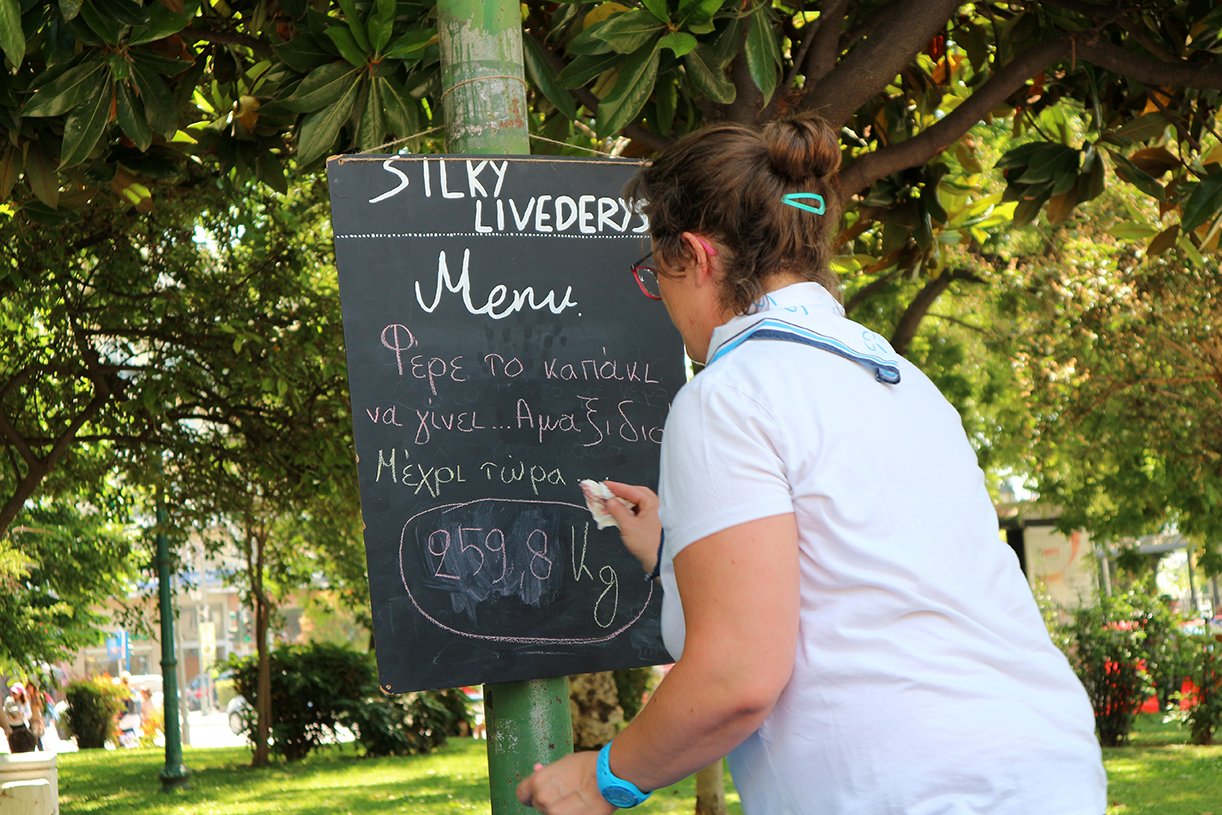 SILKY
LIVEDERYS
Menu.
Φέρε το καπάκι
να γίνει...Αμαξιδιο
Μέχρι τώρα
259,8 Kg